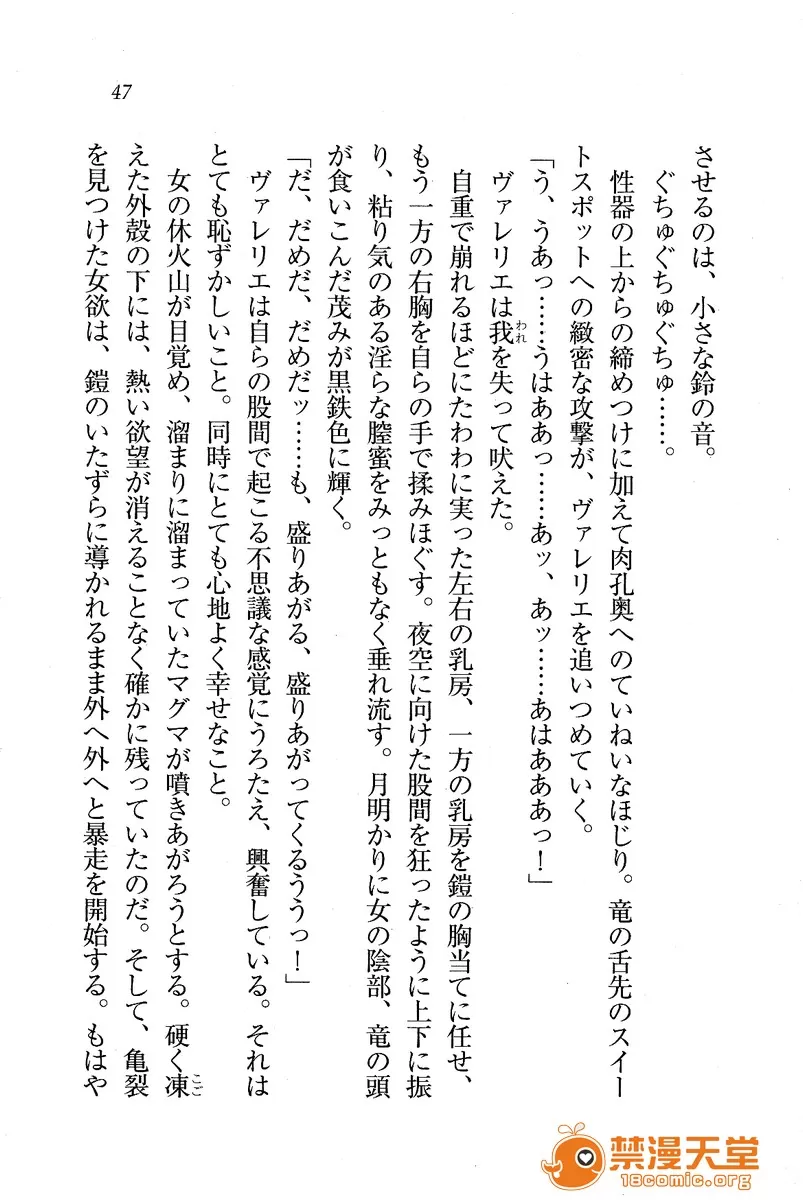 47
させるのは、小さな鈴の音。
ぐちゅぐちゅぐちゅ……。
性器の上からの締めつけに加えて肉孔奥へのていねいなほじり。竜の舌先のスイー
トスポットへの緻密な攻撃が、ヴァレリエを追いつめていく。
「う、うあっ……うはああっ……あッ、あッ……あはあああっ！」
ヴァレリエは我を失って吠えた。
われ
自重で崩れるほどにたわわに実った左右の乳房、一方の乳房を鎧の胸当てに任せ、
もう一方の右胸を自らの手で揉みほぐす。夜空に向けた股間を狂ったように上下に振
り、粘り気のある淫らな膣蜜をみっともなく垂れ流す。月明かりに女の陰部、竜の頭
が食いこんだ茂みが黒鉄色に輝く。
「だ、だめだ、だめだッ……も、盛りあがる、盛りあがってくるううっ！」
ヴァレリエは自らの股間で起こる不思議な感覚にうろたえ、興奮している。それは
とても恥ずかしいこと。同時にとても心地よく幸せなこと。
女の休火山が目覚め、溜まりに溜まっていたマグマが噴きあがろうとする。硬く凍
こご
えた外殻の下には、熱い欲望が消えることなく確かに残っていたのだ。そして、亀裂
を見つけた女欲は、鎧のいたずらに導かれるまま外へ外へと暴走を開始する。もはや
禁漫天堂
18comic.org